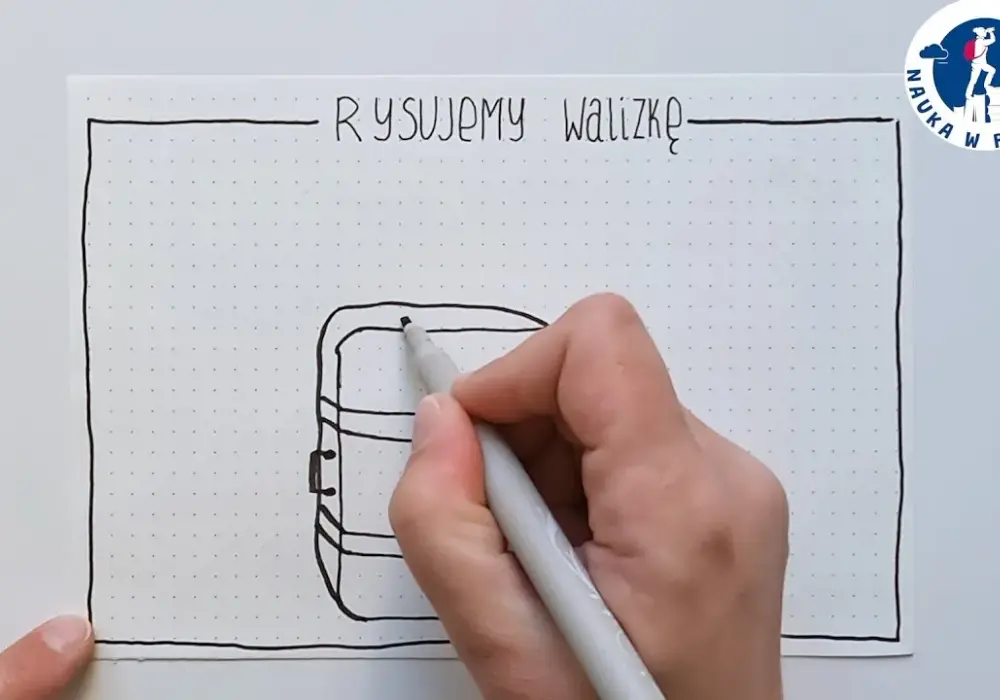 RYSUJEMY WALIZKĘ
NAUKA W